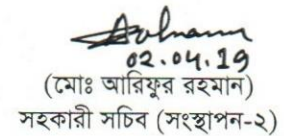 02.04.19
(মোঃ আরিফুর রহমান)
সহকারী সচিব (সংস্থাপন-২)